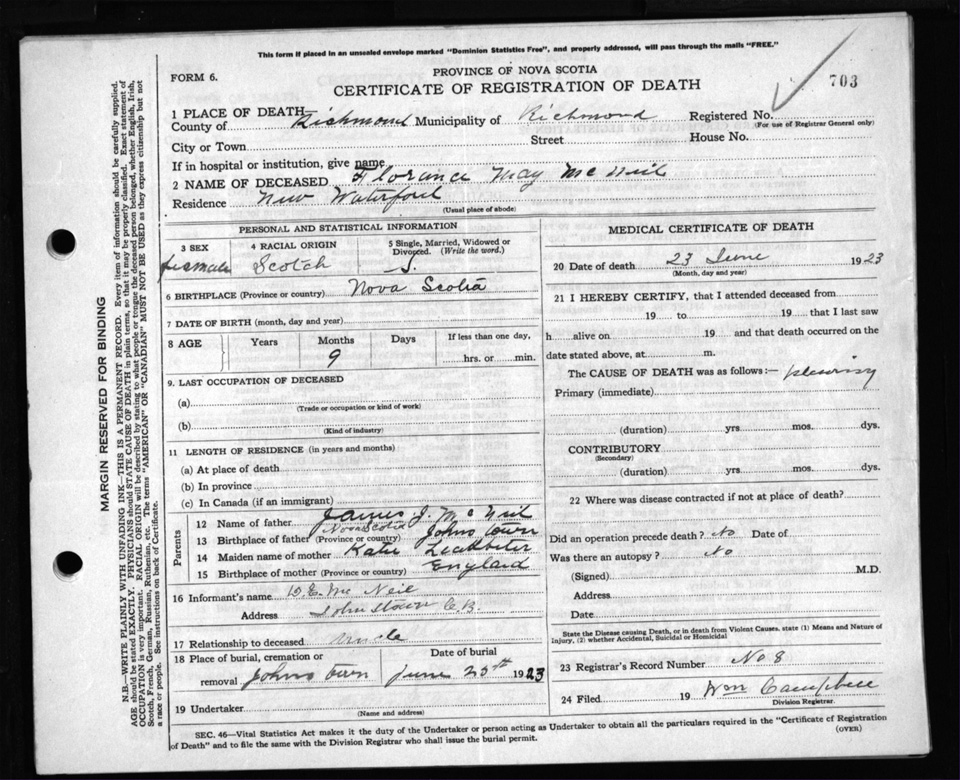 This form if placed in an unsealed envelope marked "Dominion Statistics Free", and properly addressed, will pass through the mails "FREE."
FORM 6.
PROVINCE OF NOVA SCOTIA
703
CERTIFICATE OF REGISTRATION OF DEATH
1 PLACE OF DEATH
County of Richmond Municipality of Richmond Registered No.
(For use of Registrar General only)
City or Town Street House No.
If in hospital or institution, give name
2 NAME OF DECEASED Florance May McNeil
Residence New Waterford
(Usual place of abode)
PERSONAL AND STATISTICAL INFORMATION
3 SEX 4 RACIAL ORIGIN 5 Single, Married, Widowed or Divorced. (Write the word.)
female Scotch S.
6 BIRTHPLACE (Province or country) Nova Scotia
7 DATE OF BIRTH (month, day and year)
8 AGE Years Months Days If less than one day,
9 hrs. or min.
9. LAST OCCUPATION OF DECEASED
(a)
(Trade or occupation or kind of work)
(b)
(Kind of industry)
11 LENGTH OF RESIDENCE (in years and months)
(a) At place of death
(b) In province
(c) In Canada (if an immigrant)
Parents
12 Name of father James J. McNeil
13 Birthplace of father (Province or country) Nova Scotia Johns town
14 Maiden name of mother Katie
15 Birthplace of mother (Province or country) England
16 Informant's name D. E. McNeil
Address Johnstown C.B.
17 Relationship to deceased Uncle
18 Place of burial, cremation or removal Johns town Date of burial June 25th 1923
19 Undertaker
(Name and address)
MEDICAL CERTIFICATE OF DEATH
20 Date of death 23 June 1923
(Month, day and year)
21 I HEREBY CERTIFY, that I attended deceased from
19 to 19 that I last saw
h alive on 19 and that death occurred on the
date stated above, at m.
The CAUSE OF DEATH was as follows:— pleurisy
Primary (immediate)
(duration) yrs. mos. dys.
CONTRIBUTORY
(Secondary)
(duration) yrs. mos. dys.
22 Where was disease contracted if not at place of death?
Did an operation precede death? No Date of
Was there an autopsy? No
(Signed) M.D.
Address
Date
State the Disease causing Death, or in death from Violent Causes, state (1) Means and Nature of
Injury, (2) whether Accidental, Suicidal or Homicidal
23 Registrar's Record Number No 8
24 Filed 19 Wm Campbell
Division Registrar.
SEC. 46—Vital Statistics Act makes it the duty of the Undertaker or person acting as Undertaker to obtain all the particulars required in the "Certificate of Registration
of Death" and to file the same with the Division Registrar who shall issue the burial permit.
(OVER)
MARGIN RESERVED FOR BINDING
N.B.—WRITE PLAINLY WITH UNFADING INK—THIS IS A PERMANENT RECORD. Every item of information should be carefully supplied.
AGE should be stated EXACTLY. PHYSICIANS should STATE CAUSE OF DEATH in plain terms, so that it may be properly classified. Exact statement of
OCCUPATION is very important. RACIAL ORIGIN will be described by stating to what people or tongue the deceased person belonged, whether English, Irish,
Scotch, French, German, Russian, Ruthenian, etc. The terms "AMERICAN" OR "CANADIAN" MUST NOT BE USED as they express citizenship but not
a race or people. See instructions on back of Certificate.